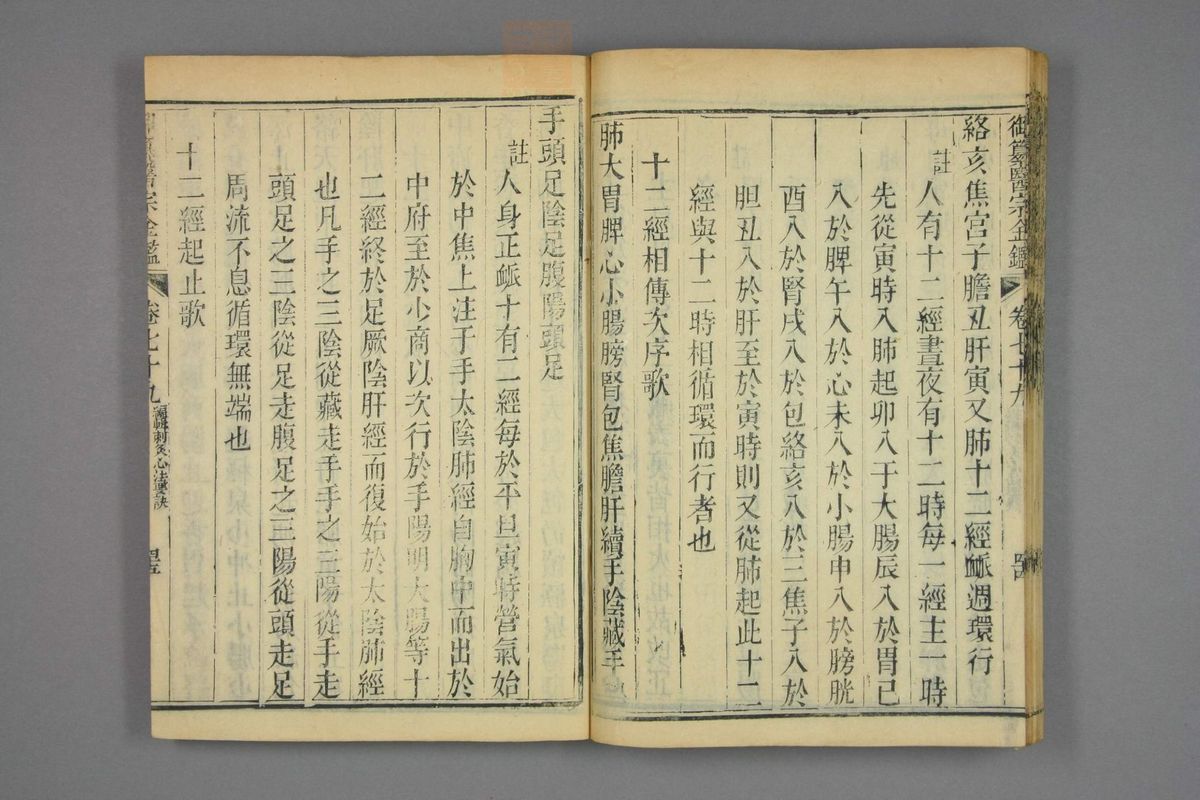 御纂醫宗金鑑 卷七十九
絡亥焦宮子膽丑肝寅又肺十二經䘑週環行
註 人有十二經晝夜有十二時每一經主一時
先從寅時入肺起卯入于大腸辰入於胃巳
入於脾午入於心未入於小腸申入於膀胱
酉入於腎戌入於包絡亥入於三焦子入於
胆丑入於肝至於寅時則又從肺起此十二
經與十二時相循環而行者也
十二經相傳次序歌
肺大胃脾心小腸膀腎包焦膽肝續手陰藏手
手頭足陰足腹陽頭足
註 人身正䘑十有二經每於平旦寅時營氣始
於中焦上注于手太陰肺經自胸中而出於
中府至於少商以次行於手陽明大陽等十
二經終於足厥陰肝經而復始於太陰肺經
也凡手之三陰從藏走手手之三陽從手走
頭足之三陰從足走腹足之三陽從頭走足
周流不息循環無端也
十二經起止歌
醫宗金鑑 卷七十九 編輯刺灸心法要訣